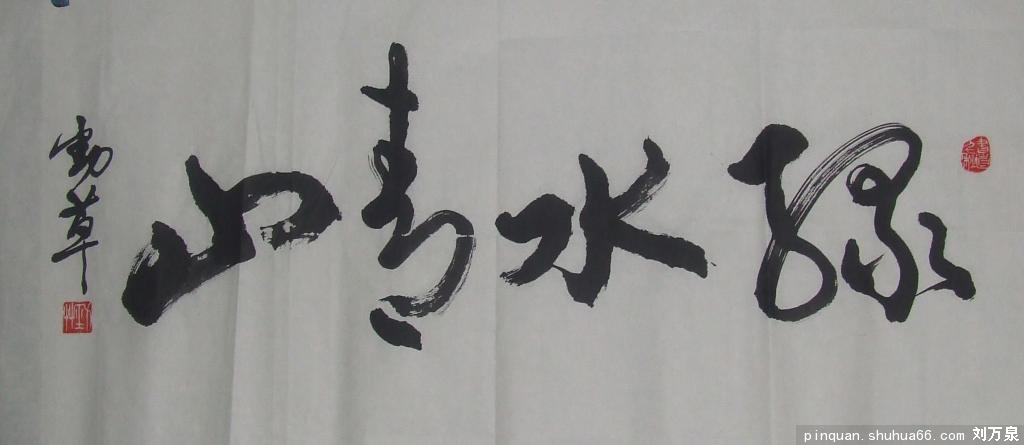 绿水青山
劲草
pinquan.shuhua66.com 刘万泉